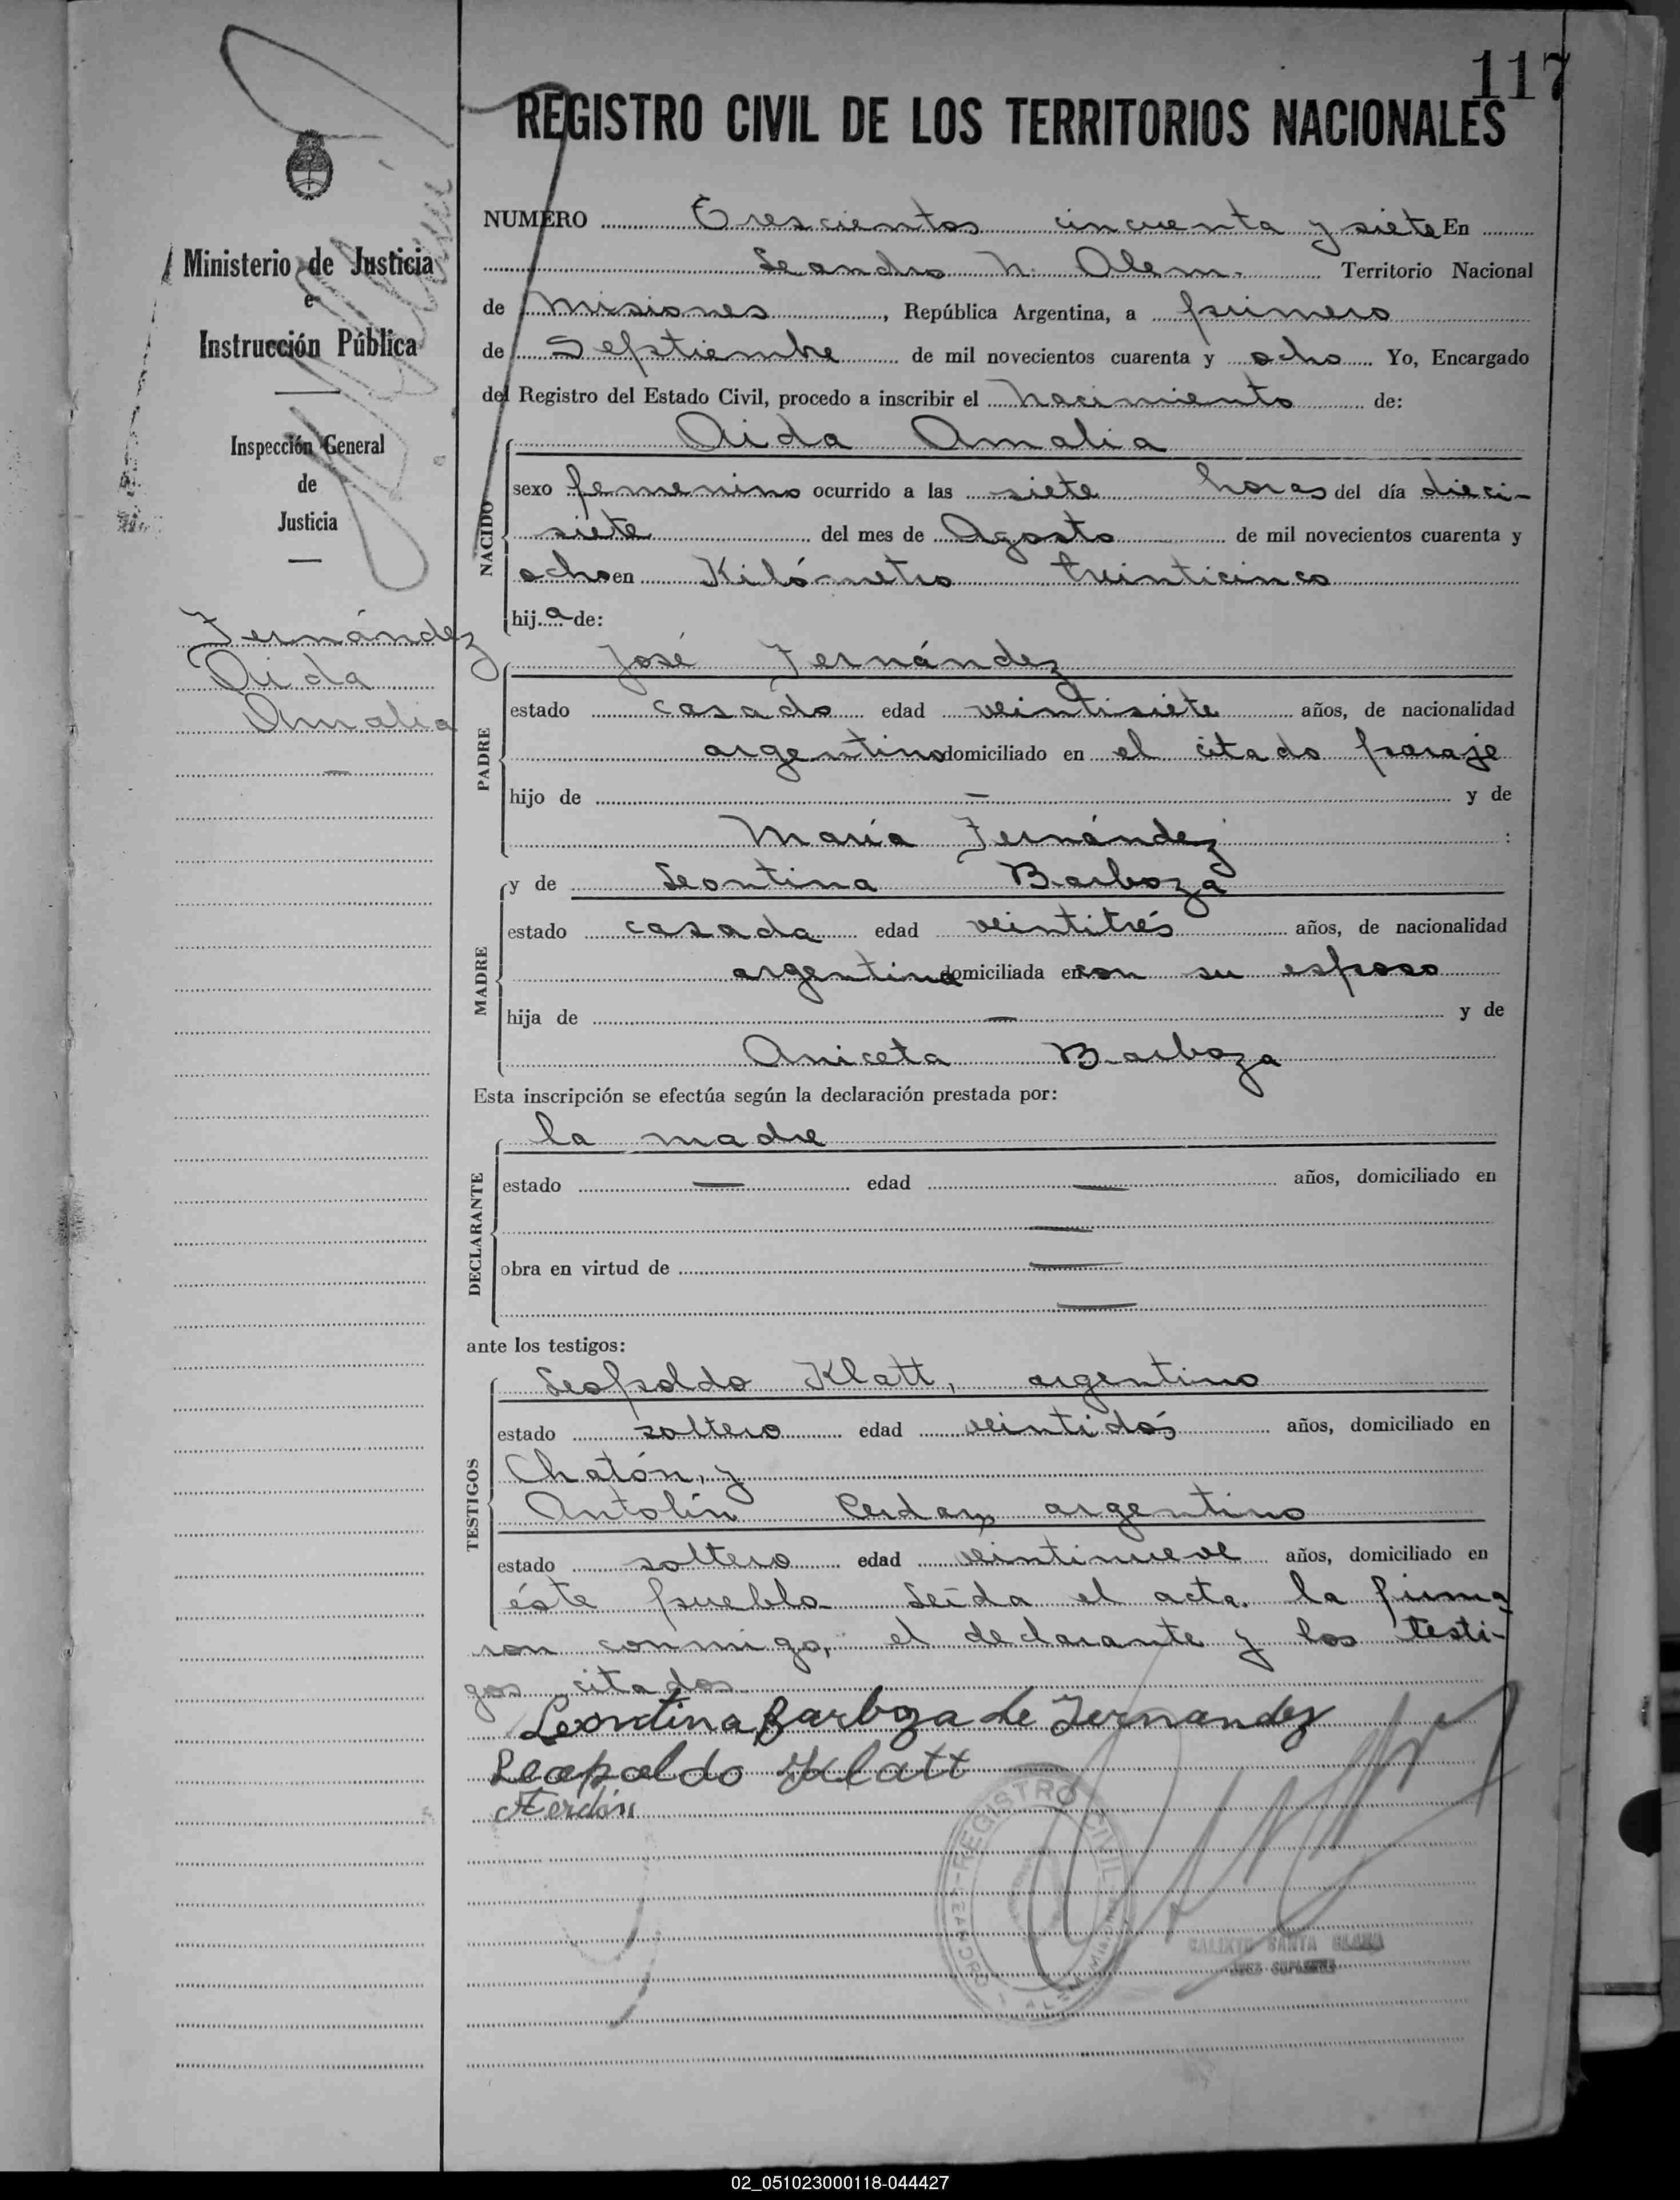 117
REGISTRO CIVIL DE LOS TERRITORIOS NACIONALES
Ministerio de Justicia
e
Instrucción Pública
Inspección General
de
Justicia
Fernández
Aida
Amalia
NUMERO Trescientos cincuenta y siete En
Leandro N. Alem. Territorio Nacional
de Misiones, República Argentina, a primero
de Septiembre de mil novecientos cuarenta y ocho Yo, Encargado
del Registro del Estado Civil, procedo a inscribir el nacimiento de:
NACIDO
Aida Amalia
sexo femenino ocurrido a las siete horas del día dieci-
siete del mes de Agosto de mil novecientos cuarenta y
ocho en Kilómetro treinticinco
hija de:
PADRE
José Fernández
estado casado edad veintisiete años, de nacionalidad
argentino domiciliado en el citado paraje
hijo de — y de
María Fernández :
MADRE
y de Leontina Barboza
estado casada edad veintitrés años, de nacionalidad
argentina domiciliada en con su esposo
hija de — y de
Aniceta Barboza
Esta inscripción se efectúa según la declaración prestada por:
DECLARANTE
la madre
estado — edad — años, domiciliado en
—
obra en virtud de —
—
ante los testigos:
TESTIGOS
Leopoldo Klatt, argentino
estado soltero edad veintidós años, domiciliado en
Chatón, y
Antolín argentino
estado soltero edad veintinueve años, domiciliado en
éste pueblo Leída el acta, la firma
ron conmigo, el declarante y los testi-
gos citados
Leontina Barboza de Fernandez
Leopoldo Klatt
REGISTRO CIVIL
CALIXTO SANTA
JUEZ SUPLENTE
02_051023000118-044427